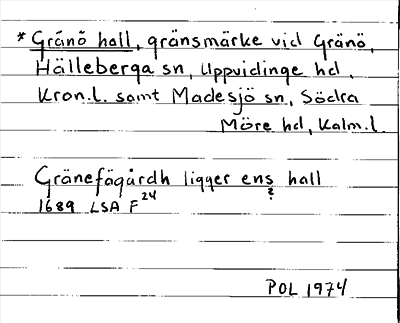 * Gränö hall, gränsmärke vid Gränö,
Hälleberga sn, Uppvidinge hd,
Kron.l. samt Madesjö sn, Södra
Möre hd, Kalm.l.
Gränefägårdh ligger ens hall
?
1689 LSA F 24
POL 1974